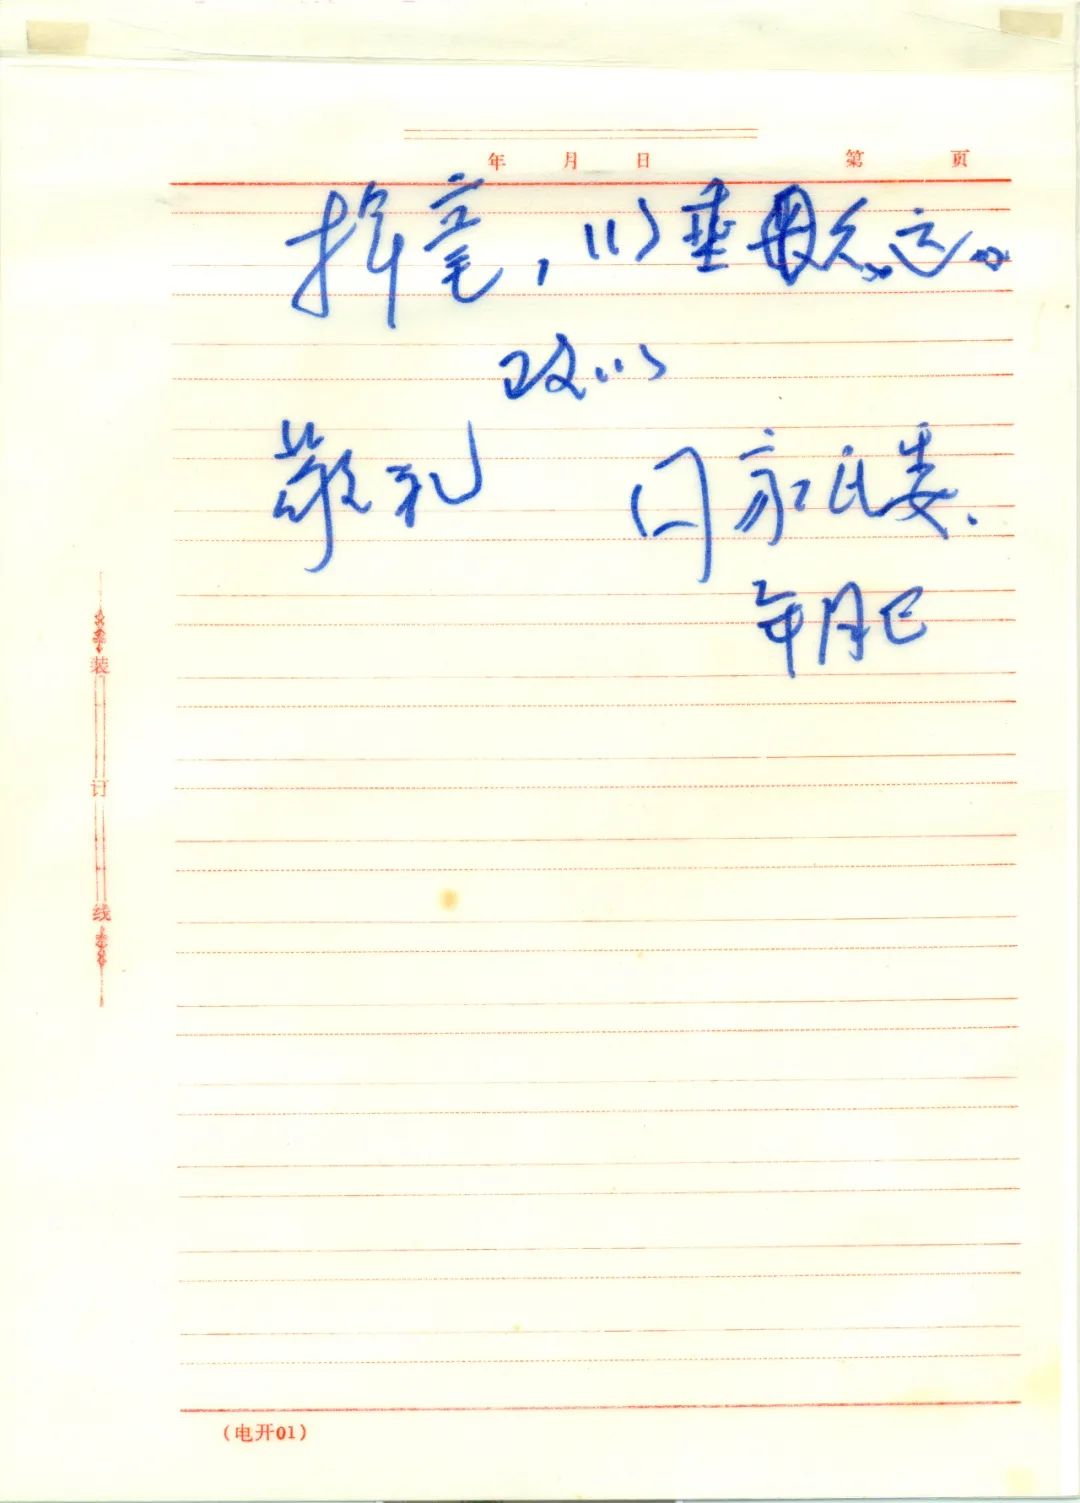 年 月 日 第 页
挥毫，以垂久远。
致以
敬礼 国家民委.
年月日
装
订
线
(电开01)